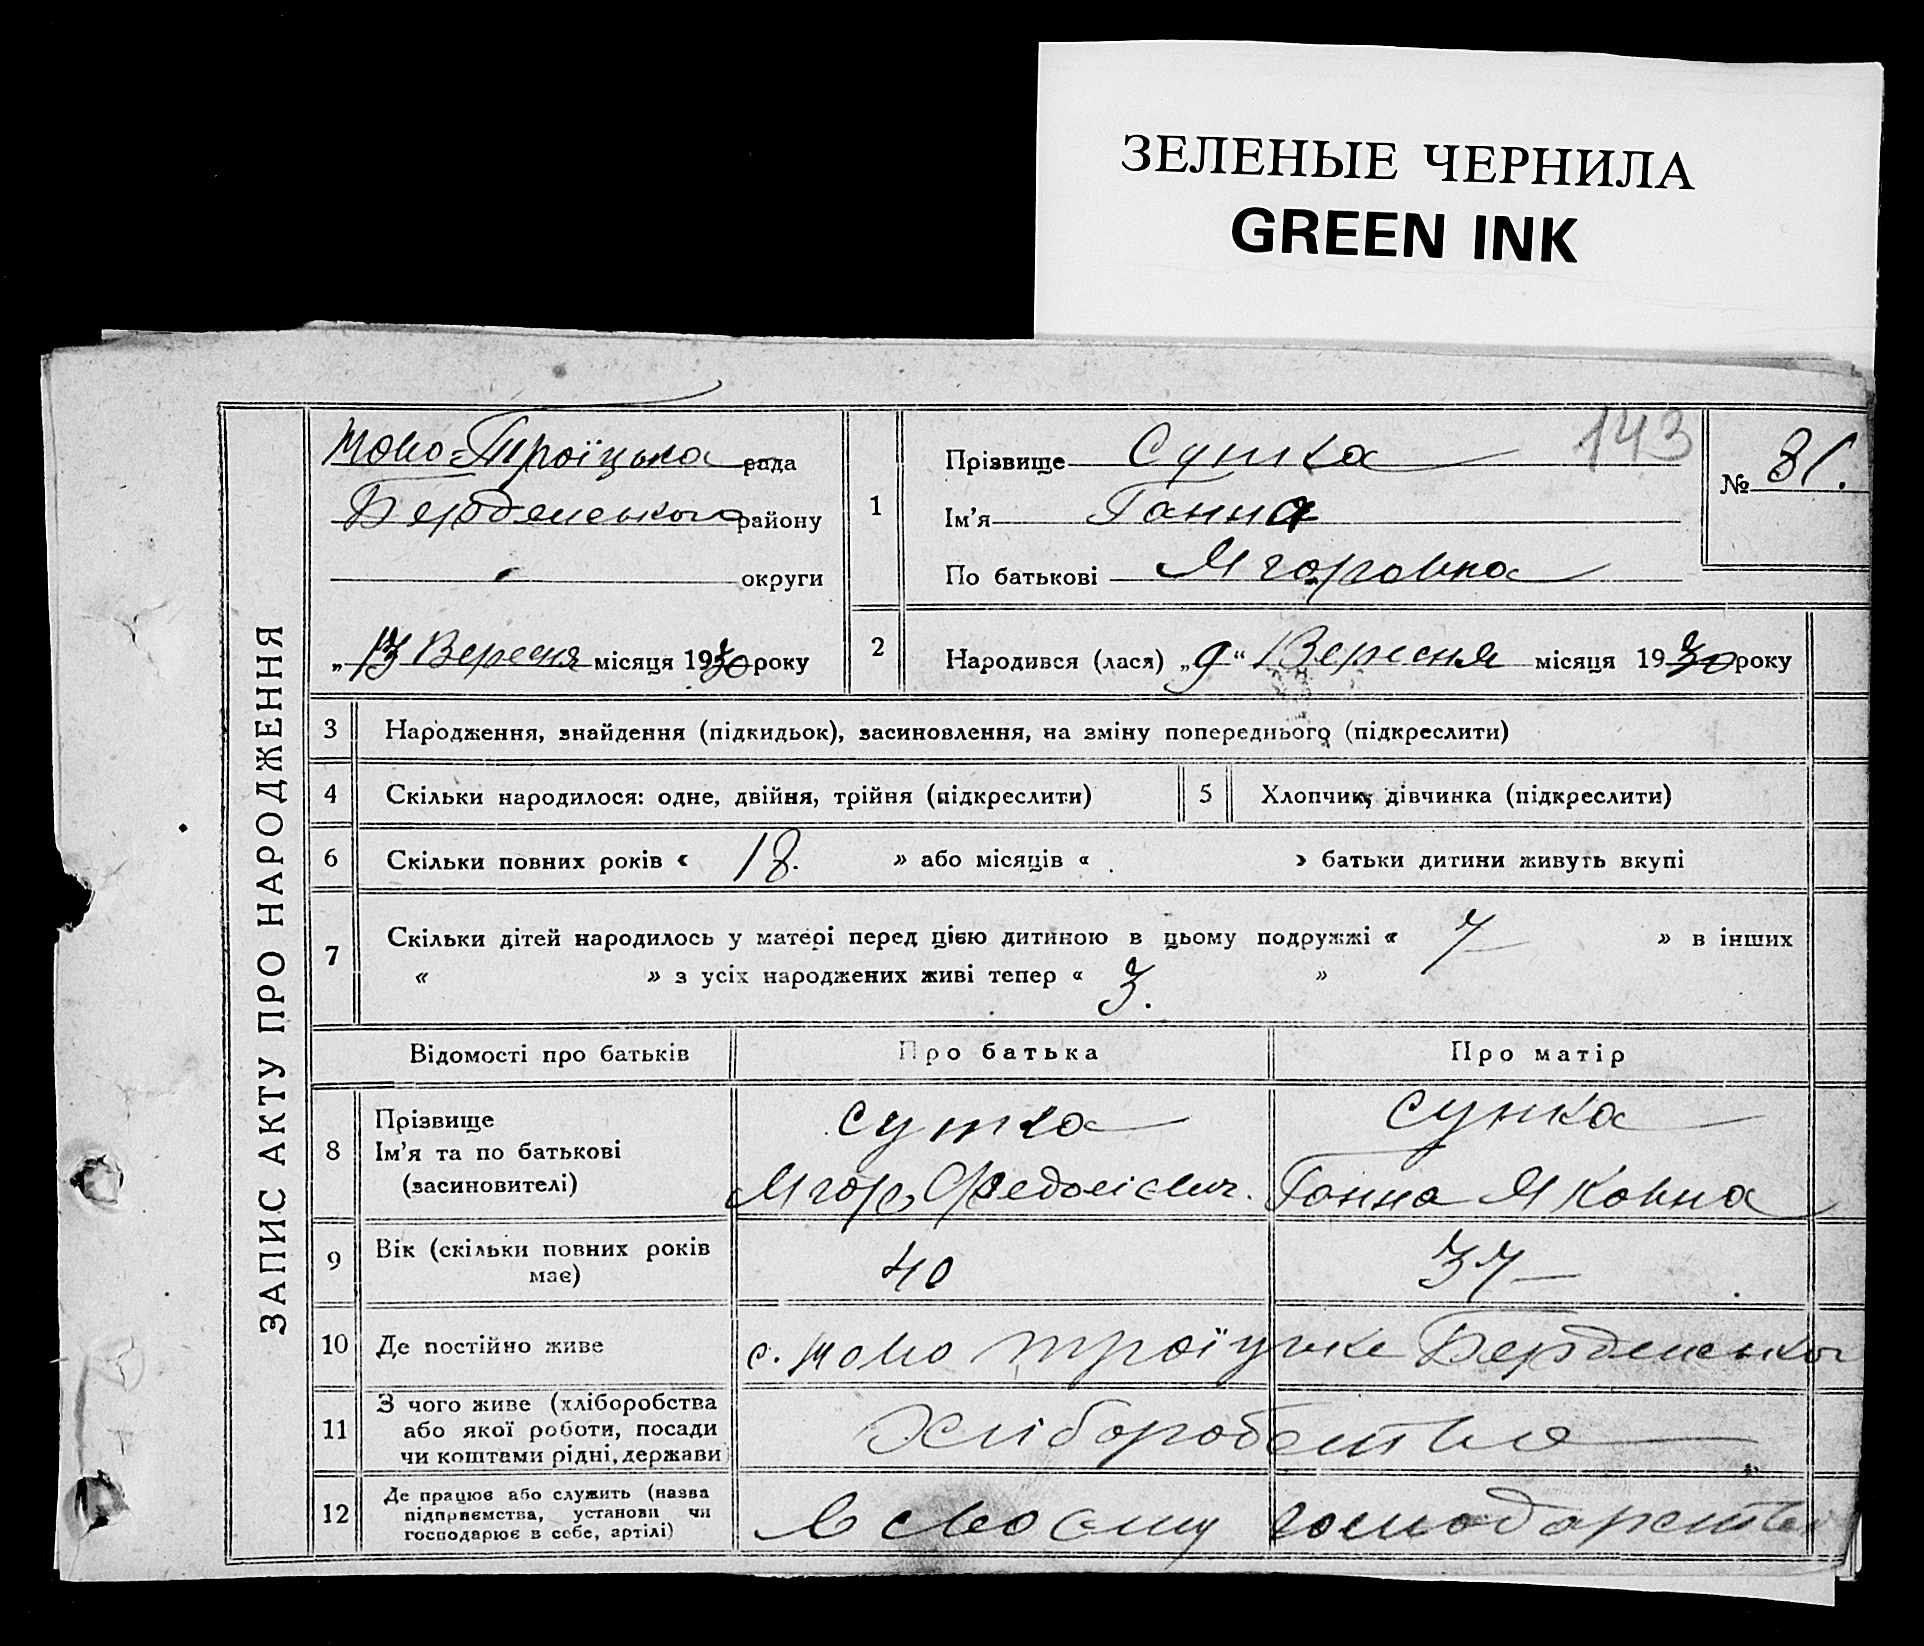 ЗЕЛЕНЫЕ ЧЕРНИЛА
GREEN INK
ЗАПИС АКТУ ПРО НАРОДЖЕННЯ
Ново-Троїцька рада
Бердянського району
округи
„13 Вересня місяця 1930 року
1
Прізвище Сушка
143
№ 31.
Ім'я Ганна
По батькові Ягоровна
2
Народився (лася) „9“ Вересня місяця 1930 року
3 Народження, знайдення (підкидьок), засиновлення, на зміну попереднього (підкреслити)
4 Скільки народилося: одне, двійня, трійня (підкреслити)
5 Хлопчик, дівчинка (підкреслити)
6 Скільки повних років « 18. » або місяців « » батьки дитини живуть вкупі
7 Скільки дітей народилось у матері перед цією дитиною в цьому подружжі « 7 » в інших
« » з усіх народжених живі тепер « 3. »
Відомості про батьків
Про батька
Про матір
8 Прізвище
Ім'я та по батькові
(засиновителі)
Сушка
Ягор
Сушка
Ганна Яковна
9 Вік (скільки повних років
має)
40
37
10 Де постійно живе
с. Ново Троїцьке Бердянсько
11 З чого живе (хліборобства
або якої роботи, посади
чи коштами рідні, держави
Хліборобства
12 Де працює або служить (назва
підприємства, установи чи
господарює в себе, артілі)
в своєму господарстві